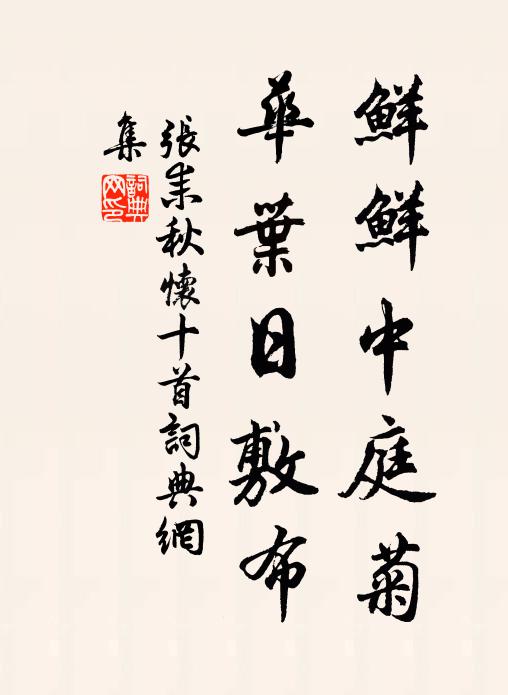 鮮鮮中庭菊
華葉日敷布
張耒秋懷十首詞典網
集
詞典
網印